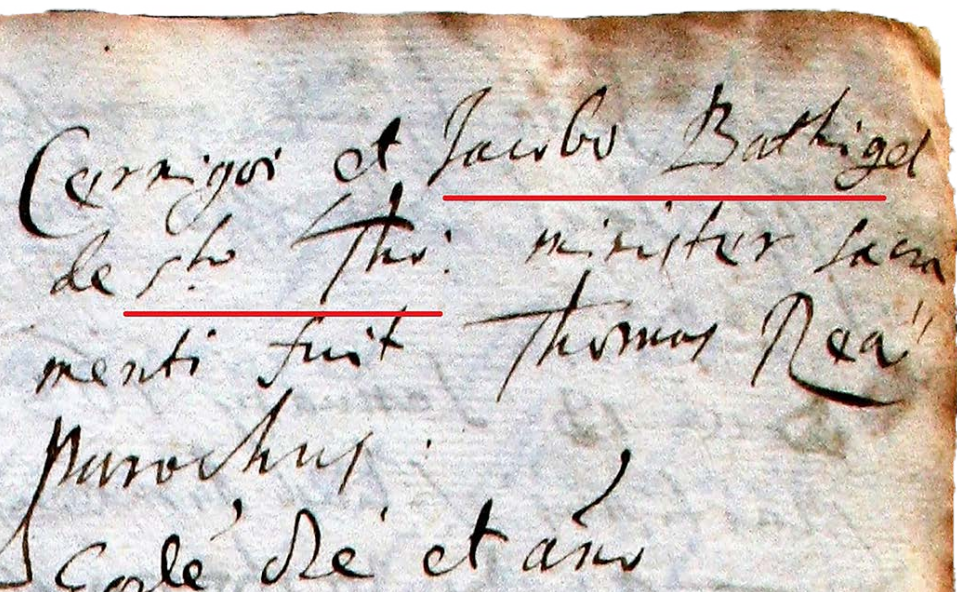 Cernigoi et Jacobo Bathigel
de sto Tho: minister sacra
menti fuit Thomas Rea
Parochus.
Eodē diē et año